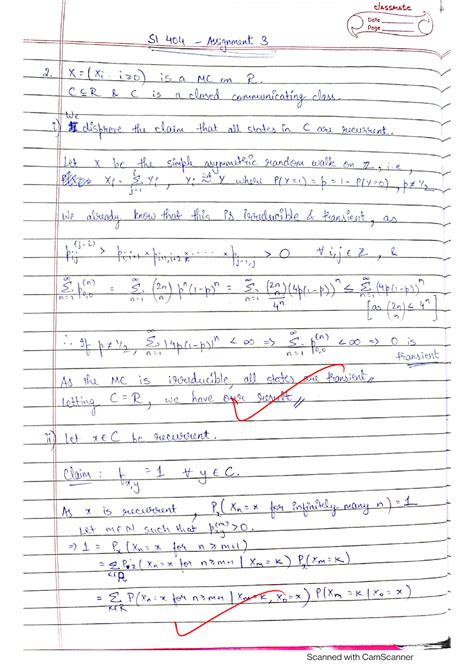 classmate
Date
Page
SI 404 - Assignment 3
2. X = (Xi : i≥0) is a MC on R.
C⊆R & C is a closed communicating class.
We
i) disprove the claim that all states in C are recurrent.
Let X be the simple asymmetric random walk on Z, i.e,
Xi = Σ_{j=1}^{i} Yj, Yj iid~ Y where P(Y=1) = p = 1 - P(Y=0), p≠1/2
We already know that this is irreducible & transient, as
p_{ij}^{(j-i)} > p_{i,i+1} × p_{i+1,i+2} × ... × p_{j-1,j} > 0 ∀ i,j ∈ Z, &
Σ_{n=1}^{∞} p_{0,0}^{(n)} = Σ_{n=1}^{∞} (2n n) p^n (1-p)^n = Σ_{n=1}^{∞} (2n n)/4^n (4p(1-p))^n ≤ Σ_{n=1}^{∞} (4p(1-p))^n
[as (2n n) ≤ 4^n]
∴ If p≠1/2, Σ_{n=1}^{∞} |4p(1-p)|^n < ∞ ⇒ Σ_{n=1}^{∞} p_{0,0}^{(n)} < ∞ ⇒ 0 is
transient
As the MC is irreducible, all states are transient
letting C=R, we have our result
ii) Let x∈C be recurrent.
Claim: f_{x,y} = 1 ∀ y∈C.
As x is recurrent, P_x(Xn = x for infinitely many n) = 1
Let m∈N such that p_{x,y}^{(m)} > 0.
⇒ 1 = P_x(Xn = x for n ≥ m+1)
= Σ_{k∈R} P_x(Xn = x for n≥m+1 | Xm = k) P(Xm = k)
= Σ_{k∈R} P(Xn = x for n≥m+1 | Xm = k, X0 = x) P(Xm = k | X0 = x)
Scanned with CamScanner